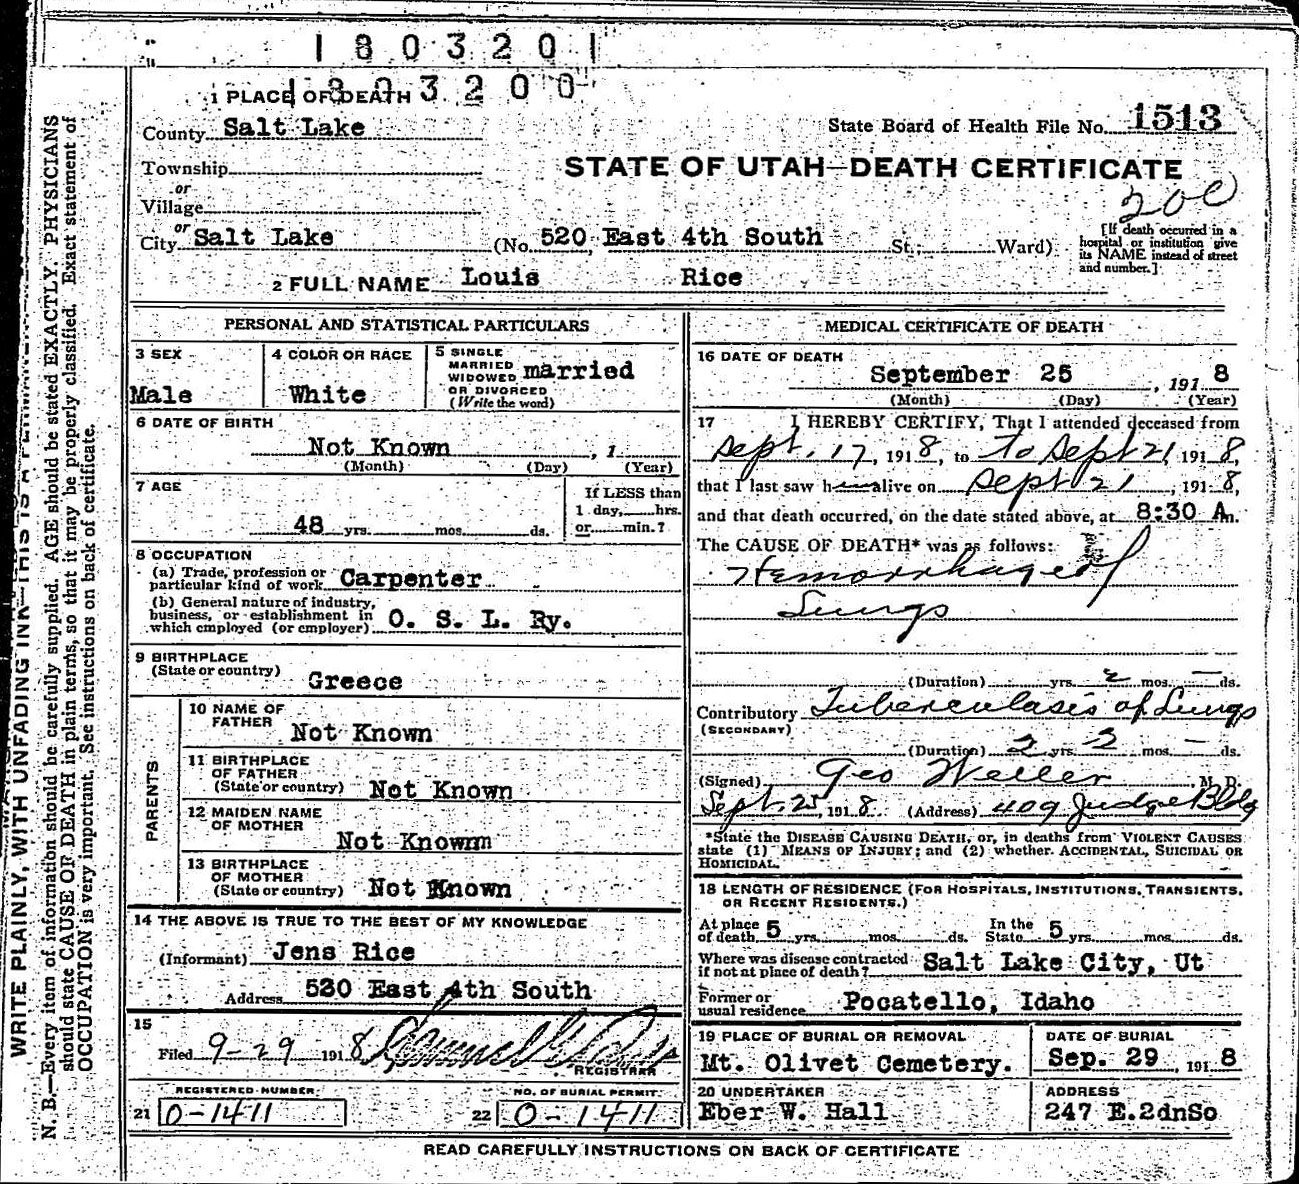 1803201
1803200
1 PLACE OF DEATH
County Salt Lake
State Board of Health File No. 1513
Township
STATE OF UTAH—DEATH CERTIFICATE
or
Village
or
City Salt Lake (No. 520 East 4th South St.; Ward)
[If death occurred in a
hospital or institution give
its NAME instead of street
and number.]
2 FULL NAME Louis Rice
PERSONAL AND STATISTICAL PARTICULARS
3 SEX
Male
4 COLOR OR RACE
White
5 SINGLE
MARRIED
WIDOWED
OR DIVORCED
(Write the word)
married
6 DATE OF BIRTH
Not Known , 1
(Month) (Day) (Year)
7 AGE
48 yrs. mos. ds.
If LESS than
1 day, hrs.
or min.?
8 OCCUPATION
(a) Trade, profession or
particular kind of work Carpenter
(b) General nature of industry,
business, or establishment in
which employed (or employer) O. S. L. Ry.
9 BIRTHPLACE
(State or country)
Greece
PARENTS
10 NAME OF
FATHER
Not Known
11 BIRTHPLACE
OF FATHER
(State or country) Not Known
12 MAIDEN NAME
OF MOTHER
Not Knownn
13 BIRTHPLACE
OF MOTHER
(State or country) Not Known
14 THE ABOVE IS TRUE TO THE BEST OF MY KNOWLEDGE
(Informant) Jens Rice
Address 520 East 4th South
15
Filed 9-29 1918
REGISTRAR
REGISTERED NUMBER
21 0-1411
NO. OF BURIAL PERMIT
22 0-1411
MEDICAL CERTIFICATE OF DEATH
16 DATE OF DEATH
September 25 , 1918
(Month) (Day) (Year)
17 I HEREBY CERTIFY, That I attended deceased from
Sept. 17, 1918, to to Sept 21 1918,
that I last saw him alive on Sept 21 , 1918,
and that death occurred, on the date stated above, at 8:30 A m.
The CAUSE OF DEATH* was as follows:
Hemorrhage of
Lungs
(Duration) yrs. 2 mos. — ds.
Contributory Tuberculasis of Lungs
(SECONDARY)
(Duration) 2 yrs. 2 mos. — ds.
(Signed) Geo Weller, M. D.
Sept. 25, 1918. (Address) 409 Judge Bldg
*State the DISEASE CAUSING DEATH, or, in deaths from VIOLENT CAUSES
state (1) MEANS OF INJURY; and (2) whether ACCIDENTAL, SUICIDAL OR
HOMICIDAL.
18 LENGTH OF RESIDENCE (FOR HOSPITALS, INSTITUTIONS, TRANSIENTS,
OR RECENT RESIDENTS.)
At place
of death 5 yrs. mos. ds.
In the
State 5 yrs. mos. ds.
Where was disease contracted
if not at place of death? Salt Lake City, Ut
Former or
usual residence Pocatello, Idaho
19 PLACE OF BURIAL OR REMOVAL
Mt. Olivet Cemetery.
DATE OF BURIAL
Sep. 29 , 1918
20 UNDERTAKER
Eber W. Hall
ADDRESS
247 E.2dnSo
READ CAREFULLY INSTRUCTIONS ON BACK OF CERTIFICATE
N. B.—Every item of information should be carefully supplied. AGE should be stated EXACTLY. PHYSICIANS
should state CAUSE OF DEATH in plain terms, so that it may be properly classified. Exact statement of
OCCUPATION is very important. See instructions on back of certificate.
WRITE PLAINLY, WITH UNFADING INK—THIS IS A